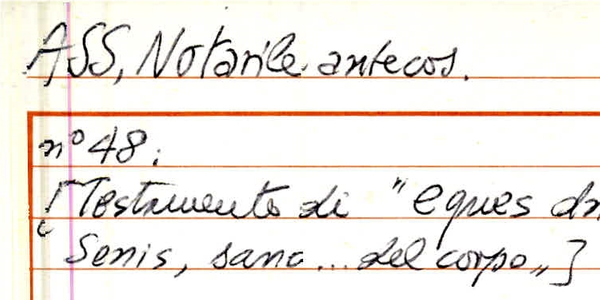 ASS, Notarile antecos.
n° 48:
[Testamento di "eques
Senis, sano ... del corpo„]